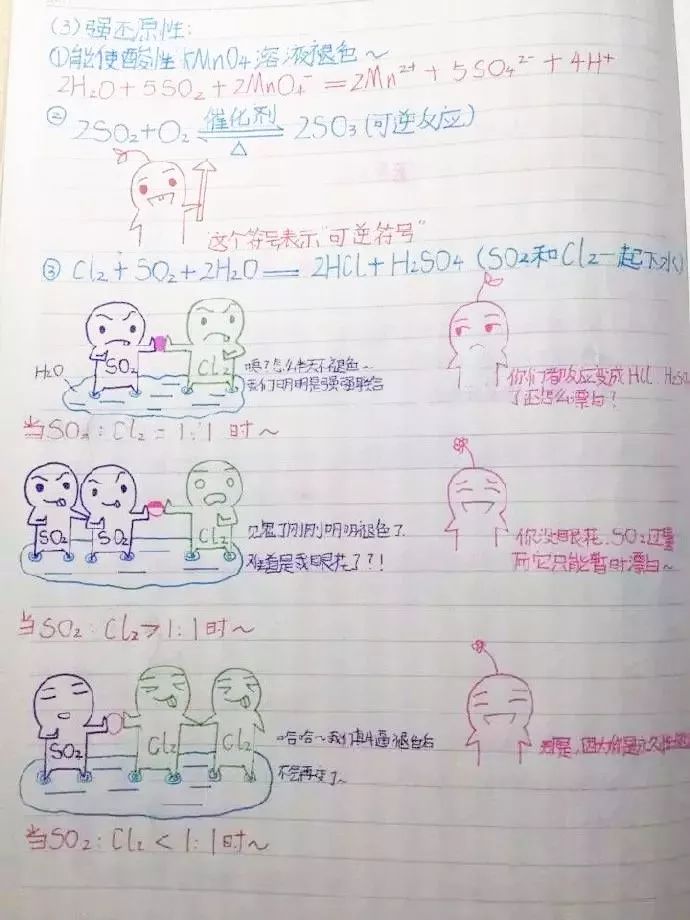 (3)强还原性:
①能使酸性KMnO4溶液褪色~
2H₂O+5SO₂+2MnO₄⁻=2Mn²⁺+5SO₄²⁻+4H⁺
② 2SO₂+O₂ 催化剂 △ 2SO₃(可逆反应)
"这个符号表示"可逆符号"
③ Cl₂+SO₂+2H₂O=2HCl+H₂SO₄(SO₂和Cl₂一起下水)
H₂O
SO₂
Cl₂
咦?怎么半天不褪色~
我们明明是强强联合
你们都反应变成HCl、H₂SO₄
了还怎么漂白?
当SO₂:Cl₂=1:1时~
SO₂
SO₂
Cl₂
见鬼了刚刚明明褪色了
难道是我眼花了?!
你没眼花,SO₂过量
而它只能暂时漂白~
当SO₂:Cl₂>1:1时~
SO₂
Cl₂
Cl₂
哈哈~我们真牛逼褪色后
不会再变了~
因为你是永久性
当SO₂:Cl₂<1:1时~